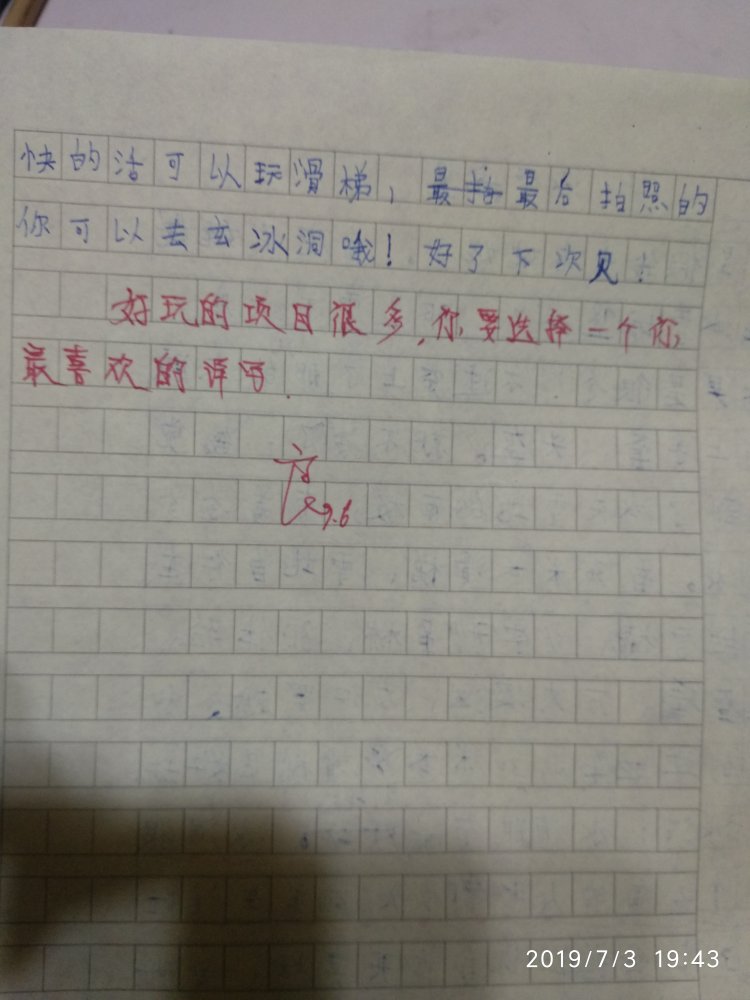 快的活可以玩滑梯，最拍最后拍照的
你可以去玄冰洞哦！好了下次见！
好玩的项目很多，你要选择一个你
最喜欢的详写.
9.6
2019/7/3 19:43